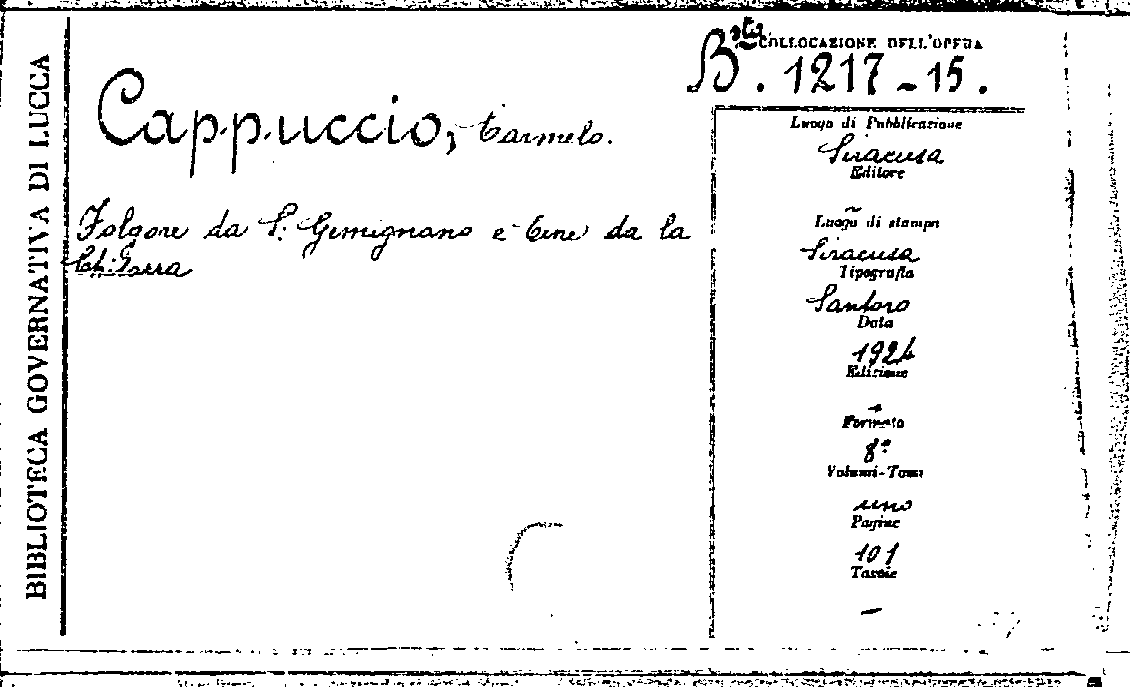 BIBLIOTECA GOVERNATIVA DI LUCCA
COLLOCAZIONE DELL'OPERA
B.sta 1217-15.
Cappuccio, Carmelo.
Folgore da S. Gemignano e Cene da la
Chitarra
Luogo di Pubblicazione
Siracusa
Editore
~
Luogo di stampa
Siracusa
Tipografia
Santoro
Data
1924
Edizione
Formato
8°
Volumi-Tomi
uno
Pagine
101
Tavole
—